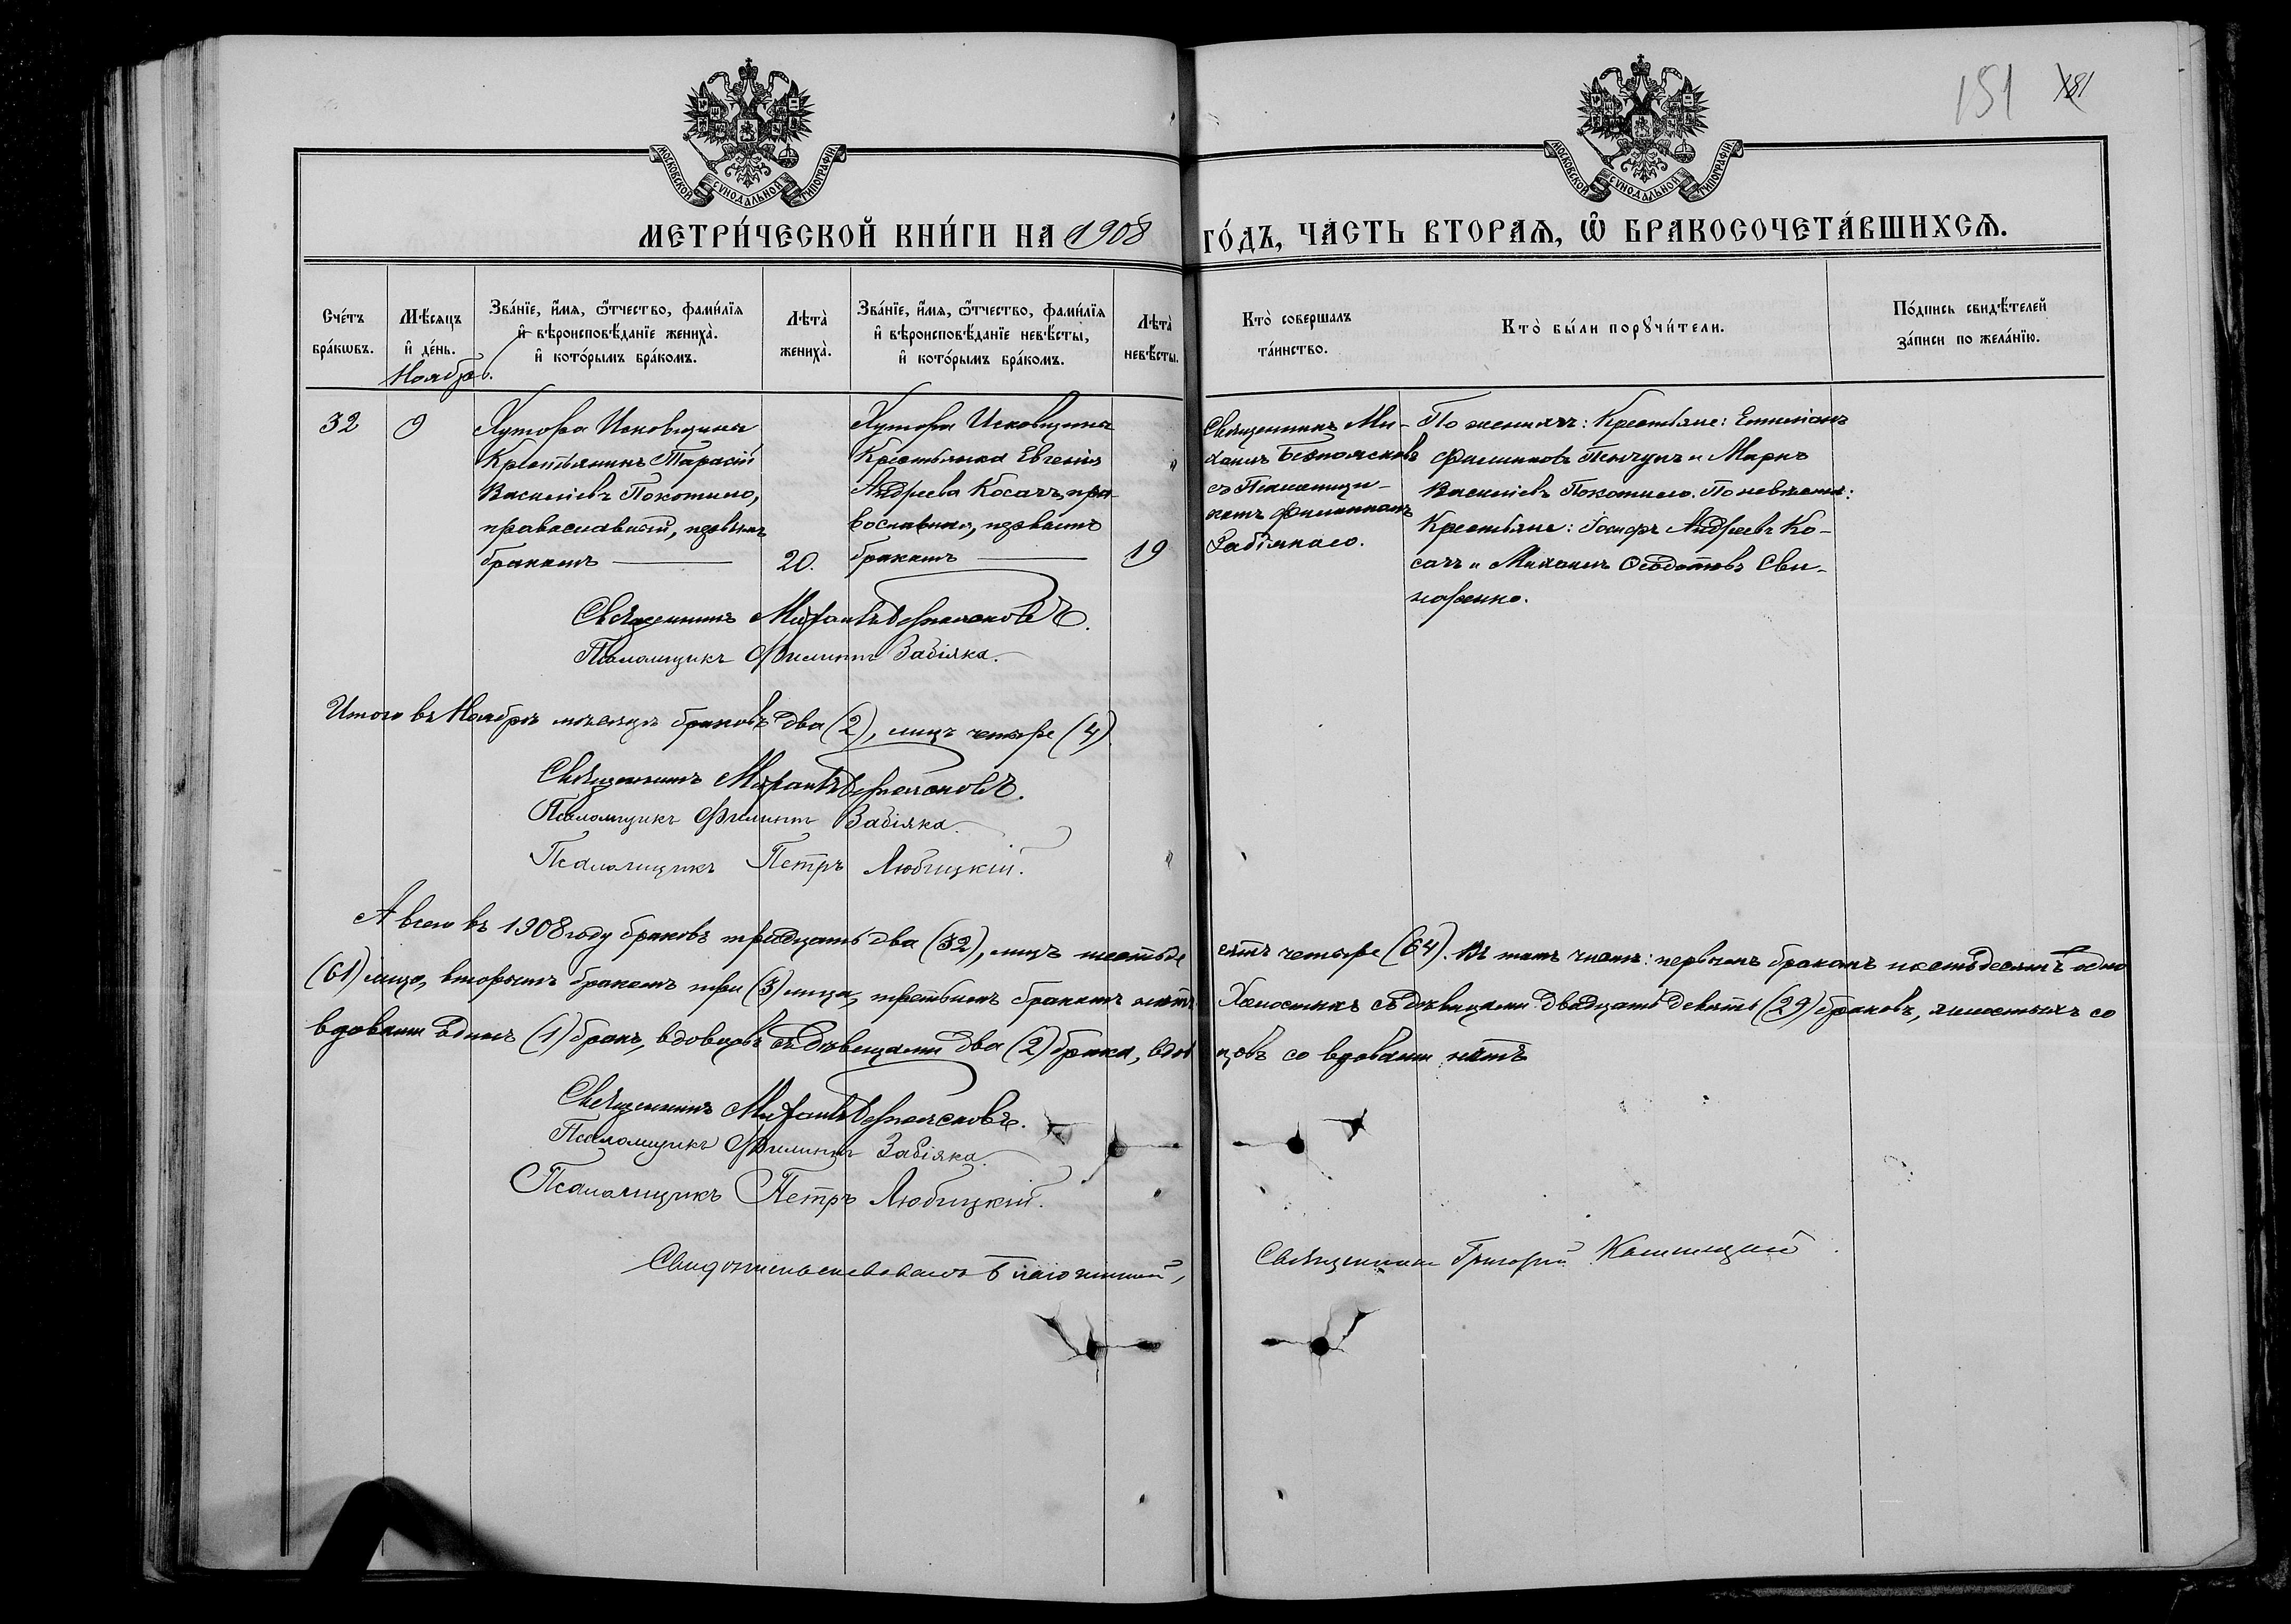 151 181
МОСКОВСКОЙ СУНОДАЛЬНОЙ ТИПОГРАФІИ
МОСКОВСКОЙ СУНОДАЛЬНОЙ ТИПОГРАФІИ
МЕТРИ́ЧЕСКОЙ КНИ́ГИ НА 1908 ГО́ДЪ, ЧА́СТЬ ВТОРАѦ, Ѡ҆ БРАКОСОЧЕТА́ВШИХСѦ.
Сче́тъ бра́кѡвъ.
Мѣ́сяцъ и҆ де́нь.
Ноябрь.
Зва́нїе, и҆́мя, ѻ҆́тчество, фами́лїя и҆ вѣроисповѣ́данїе жениха̀. и҆ кото́рымъ бра́комъ.
Лѣта̀ жениха̀.
Зва́нїе, и҆́мя, ѻ҆́тчество, фами́лїя и҆ вѣроисповѣ́данїе невѣ́сты, и҆ кото́рымъ бра́комъ.
Лѣта̀ невѣ́сты.
Кто̀ совершалъ та́инство.
Кто̀ бы́ли порꙋчи́тели.
По́дпись свидѣ́телей за́писи по жела́нїю.
32
9
Хутора Исковщина
Крестьянинъ Тарасій
Василіевъ Покотило,
православный, первымъ
бракомъ
20.
Хутора Исковщина
Крестьянка Евгенія
Андреева Косачъ, пра-
вославная, первымъ
бракомъ
19
Священникъ Ми-
хаилъ Безпоясковъ
съ Псаломщи-
комъ Филиппомъ
Забіякою.
По женихѣ: Крестьяне: Емиліанъ
Филипповъ и Маркъ
Василіевъ Покотило. По невѣстѣ:
Крестьяне: Іосифъ Андреевъ Ко-
сачъ и Михаилъ Ѳеодотовъ Сви-
наренко.
Священникъ Михаилъ Безпоясковъ.
Псаломщикъ Филиппъ Забіяка.
Итого въ Ноябрѣ мѣсяцѣ браковъ два (2), лицъ четыре (4)
Священникъ Михаилъ Безпоясковъ.
Псаломщикъ Филиппъ Забіяка.
Псаломщикъ Петръ Любицкій.
А всего въ 1908 году браковъ тридцать два (32), лицъ шестьде сятъ четыре (64). Въ томъ числѣ: первымъ бракомъ шестьдесятъ одно
(61) лицо, вторымъ бракомъ три (3) лица, третьимъ бракомъ нѣтъ Холостыхъ съ дѣвицами двадцать девять (29) браковъ, холостыхъ со
вдовами одинъ (1) бракъ, вдовцовъ съ дѣвицами два (2) брака, вдов цовъ со вдовами нѣтъ
Священникъ Михаилъ Безпоясковъ.
Псаломщикъ Филиппъ Забіяка.
Псаломщикъ Петръ Любицкій.
Свидѣтельствовалъ Благочинный, Священникъ Григорій